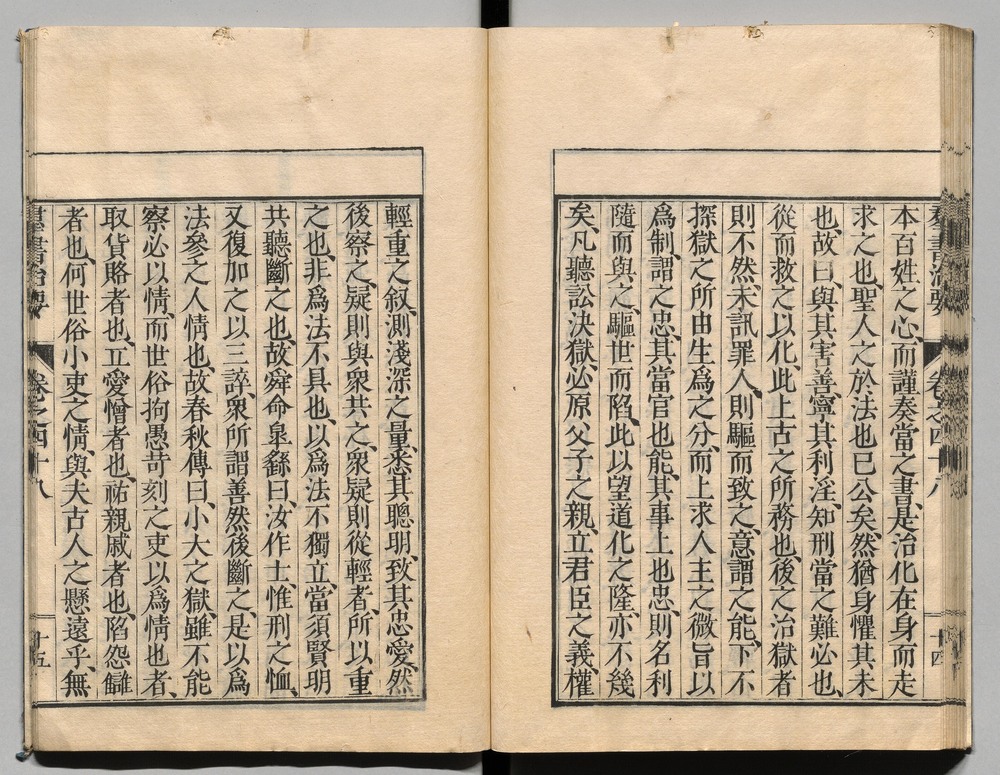 本百姓之心、而謹奏當之書、是治化在身而走
求之也、聖人之於法也已公矣、然猶身懼其未
也、故曰、與其害善、寧其利淫、知刑當之難必也、
從而救之以化、此上古之所務也、後之治獄者
則不然、未訊罪人、則驅而致之、意謂之能、下不
探獄之所由生爲之分、而上求人主之微旨以
爲制、謂之忠、其當官也能、其事上也忠、則名利
隨而與之、驅世而陷、此以望道化之隆、亦不幾
矣、凡聽訟決獄、必原父子之親、立君臣之義、權
群書治要 卷之四十八 十四
輕重之叙、測淺深之量、悉其聰明、致其忠愛、然
後察之、疑則與衆共之、衆疑則從輕者、所以重
之也、非爲法不具也、以爲法不獨立、當須賢明
共聽斷之也、故舜命皐繇曰、汝作士、惟刑之恤、
又復加之以三誶、衆所謂善、然後斷之、是以爲
法參之人情也、故春秋傳曰、小大之獄、雖不能
察、必以情、而世俗拘愚苛刻之吏、以爲情也者、
取貨賂者也、立愛憎者也、祐親戚者也、陷怨讎
者也、何世俗小吏之情、與夫古人之懸遠乎、無
群書治要 卷之四十八 十五